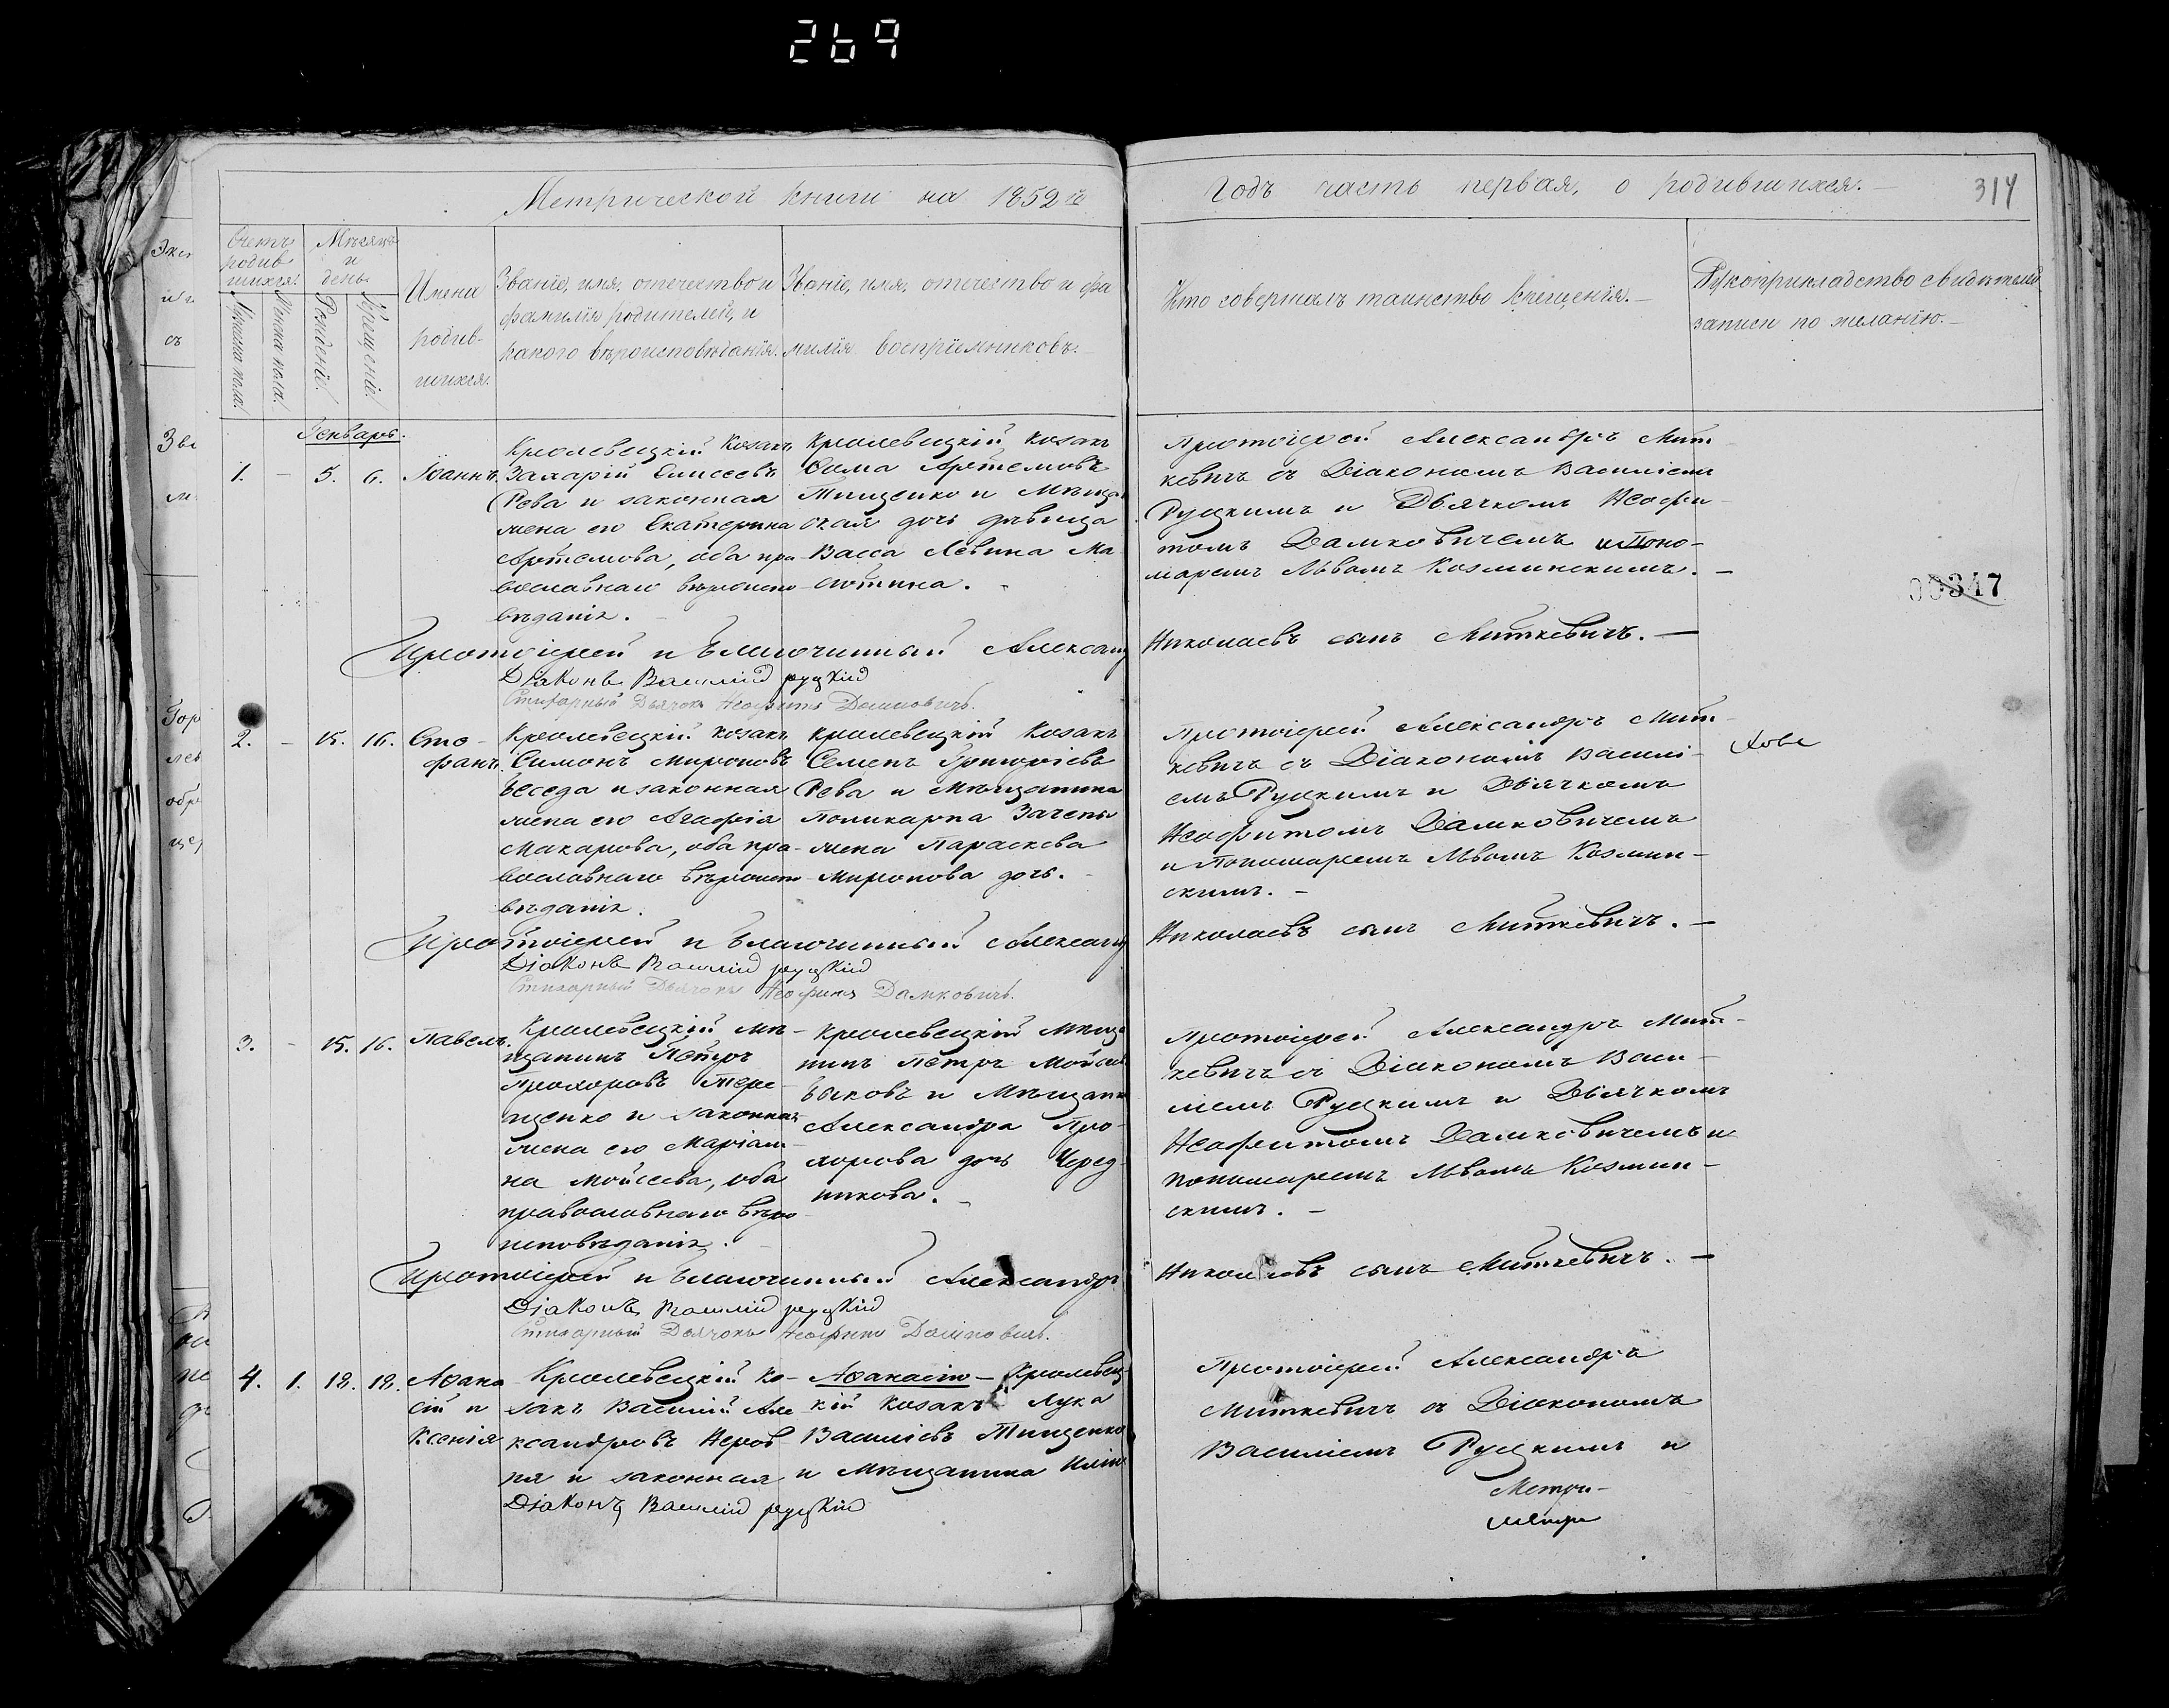 269
Метрической книги на 1852 й
Годъ часть первая, о родившихся.
314
Счетъ
родив
шихся.
Мужеска пола.
Женска пола.
Мѣсяцъ
и
день.
Рожденія.
Крещенія.
Имена
родив-
шихся.
Званіе, имя, отечество и
фамилія родителей, и
какого вѣроисповѣданія.
Званіе, имя, отечество и фа
милія воспріемниковъ.
Кто совершалъ таинство крещенія.
Рукоприкладство свидѣтелей
записи по желанію.
Генварь.
1. - 5. 6. Іоаннъ.
Кролевецкій козакъ
Захарій Елисеевъ
Рева и законная
жена его Екатерина
Артемова, оба пра-
вославнаго вѣроиспо
вѣданія.
Кролевецкій козакъ
Сима Артемовъ
Тищенко и Мѣща
ская дочь дѣвица
Васса Левина Ма
лютина.
Протоіерей Александръ Мит-
кевичъ съ Діакономъ Василіемъ
Руцкимъ и Дьячкомъ Неофи-
томъ Дамковичемъ и Поно-
маремъ Львомъ Козминскимъ.
00347
Протоіерей и Благочинный Александ
Николаевъ сынъ Миткевичъ.
Діаконъ Василій руцкій
Стихарный Дьячокъ Неофитъ Дамковичъ.
2. - 15. 16. Сте-
фанъ.
Кролевецкій козакъ
Симонъ Мироновъ
Беседа и законная
жена его Агафія
Макарова, оба пра-
вославнаго вѣроиспо
вѣданія.
Кролевецкій козакъ
Семенъ Григоріевъ
Рева и Мѣщанина
Поликарпа Зачепы
жена Параскева
Миронова дочь.
Протоіерей Александръ Мит-
кевичъ съ Діакономъ Васили-
емъ Руцкимъ и Дьячкомъ
Неофитомъ Дамковичемъ
и Пономаремъ Львомъ Козмин-
скимъ.
Протоіерей и Благочинный Александ
Николаевъ сынъ Миткевичъ.
Діаконъ Василій руцкій
Стихарный Дьячокъ Неофитъ Дамковичъ.
3. - 15. 16. Павелъ.
Кролевецкій мѣ-
щанинъ Петръ
Прохоровъ Тере-
щенко и законная
жена его Маріам-
на Мойсеева, оба
православнаго вѣро
исповѣданія.
Кролевецкій Мѣща
нинъ Петръ Мойсеев
Быковъ и Мѣщанка
Александра Про-
хорова дочь Черед-
никова.
Протоіерей Александръ Мит-
кевичъ съ Діакономъ Васи-
ліемъ Руцкимъ и Дьячкомъ
Неофитомъ Дамковичемъ и
пономаремъ Львомъ Козмин-
скимъ.
Протоіерей и Благочинный Александръ
Николаевъ сынъ Миткевичъ.
Діаконъ Василій руцкій
Стихарный Дьячокъ Неофитъ Дамковичъ.
4. 1. 18. 18. Аѳана
сій и
Ксенія
Кролевецкій ко-
закъ Василій Але
ксандровъ Неров
ня и законная
Аѳанасію - Кролевец
кій козакъ Лука
Василіевъ Тищенко
и Мѣщанина
Протоіерей Александръ
Миткевичъ съ Діакономъ
Василіемъ Руцкимъ и
Діаконъ Василій руцкій
Метри-